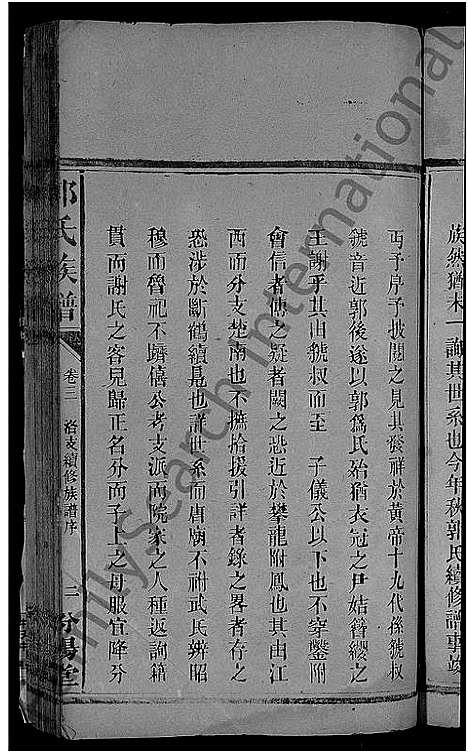 族然猶木一詢其世系也今年秋郭氏續修譜事竣
丐予序予披閱之見其發祥於黃帝十九代孫虢叔
虢音近郭後遂以郭爲氏殆猶衣冠之尹姞簪纓之
王謝乎其由虢叔而至 子儀公以下也不穿鑿附
會信者傳之疑者闕之恐近於攀龍附鳳也其由江
西而分支楚南也不摭拾援引詳者錄之畧者存之
恐涉於斷鶴續鳧也詳世系而唐廟不祔武氏辨昭
穆而魯祀不躋僖公考支派而阮家之人種返詢籍
貫而謝氏之容兒歸正名分而子上之母服宜降分
郭氏族譜
卷三 洛支續修族譜序
二 汾陽堂
FamilySearch International